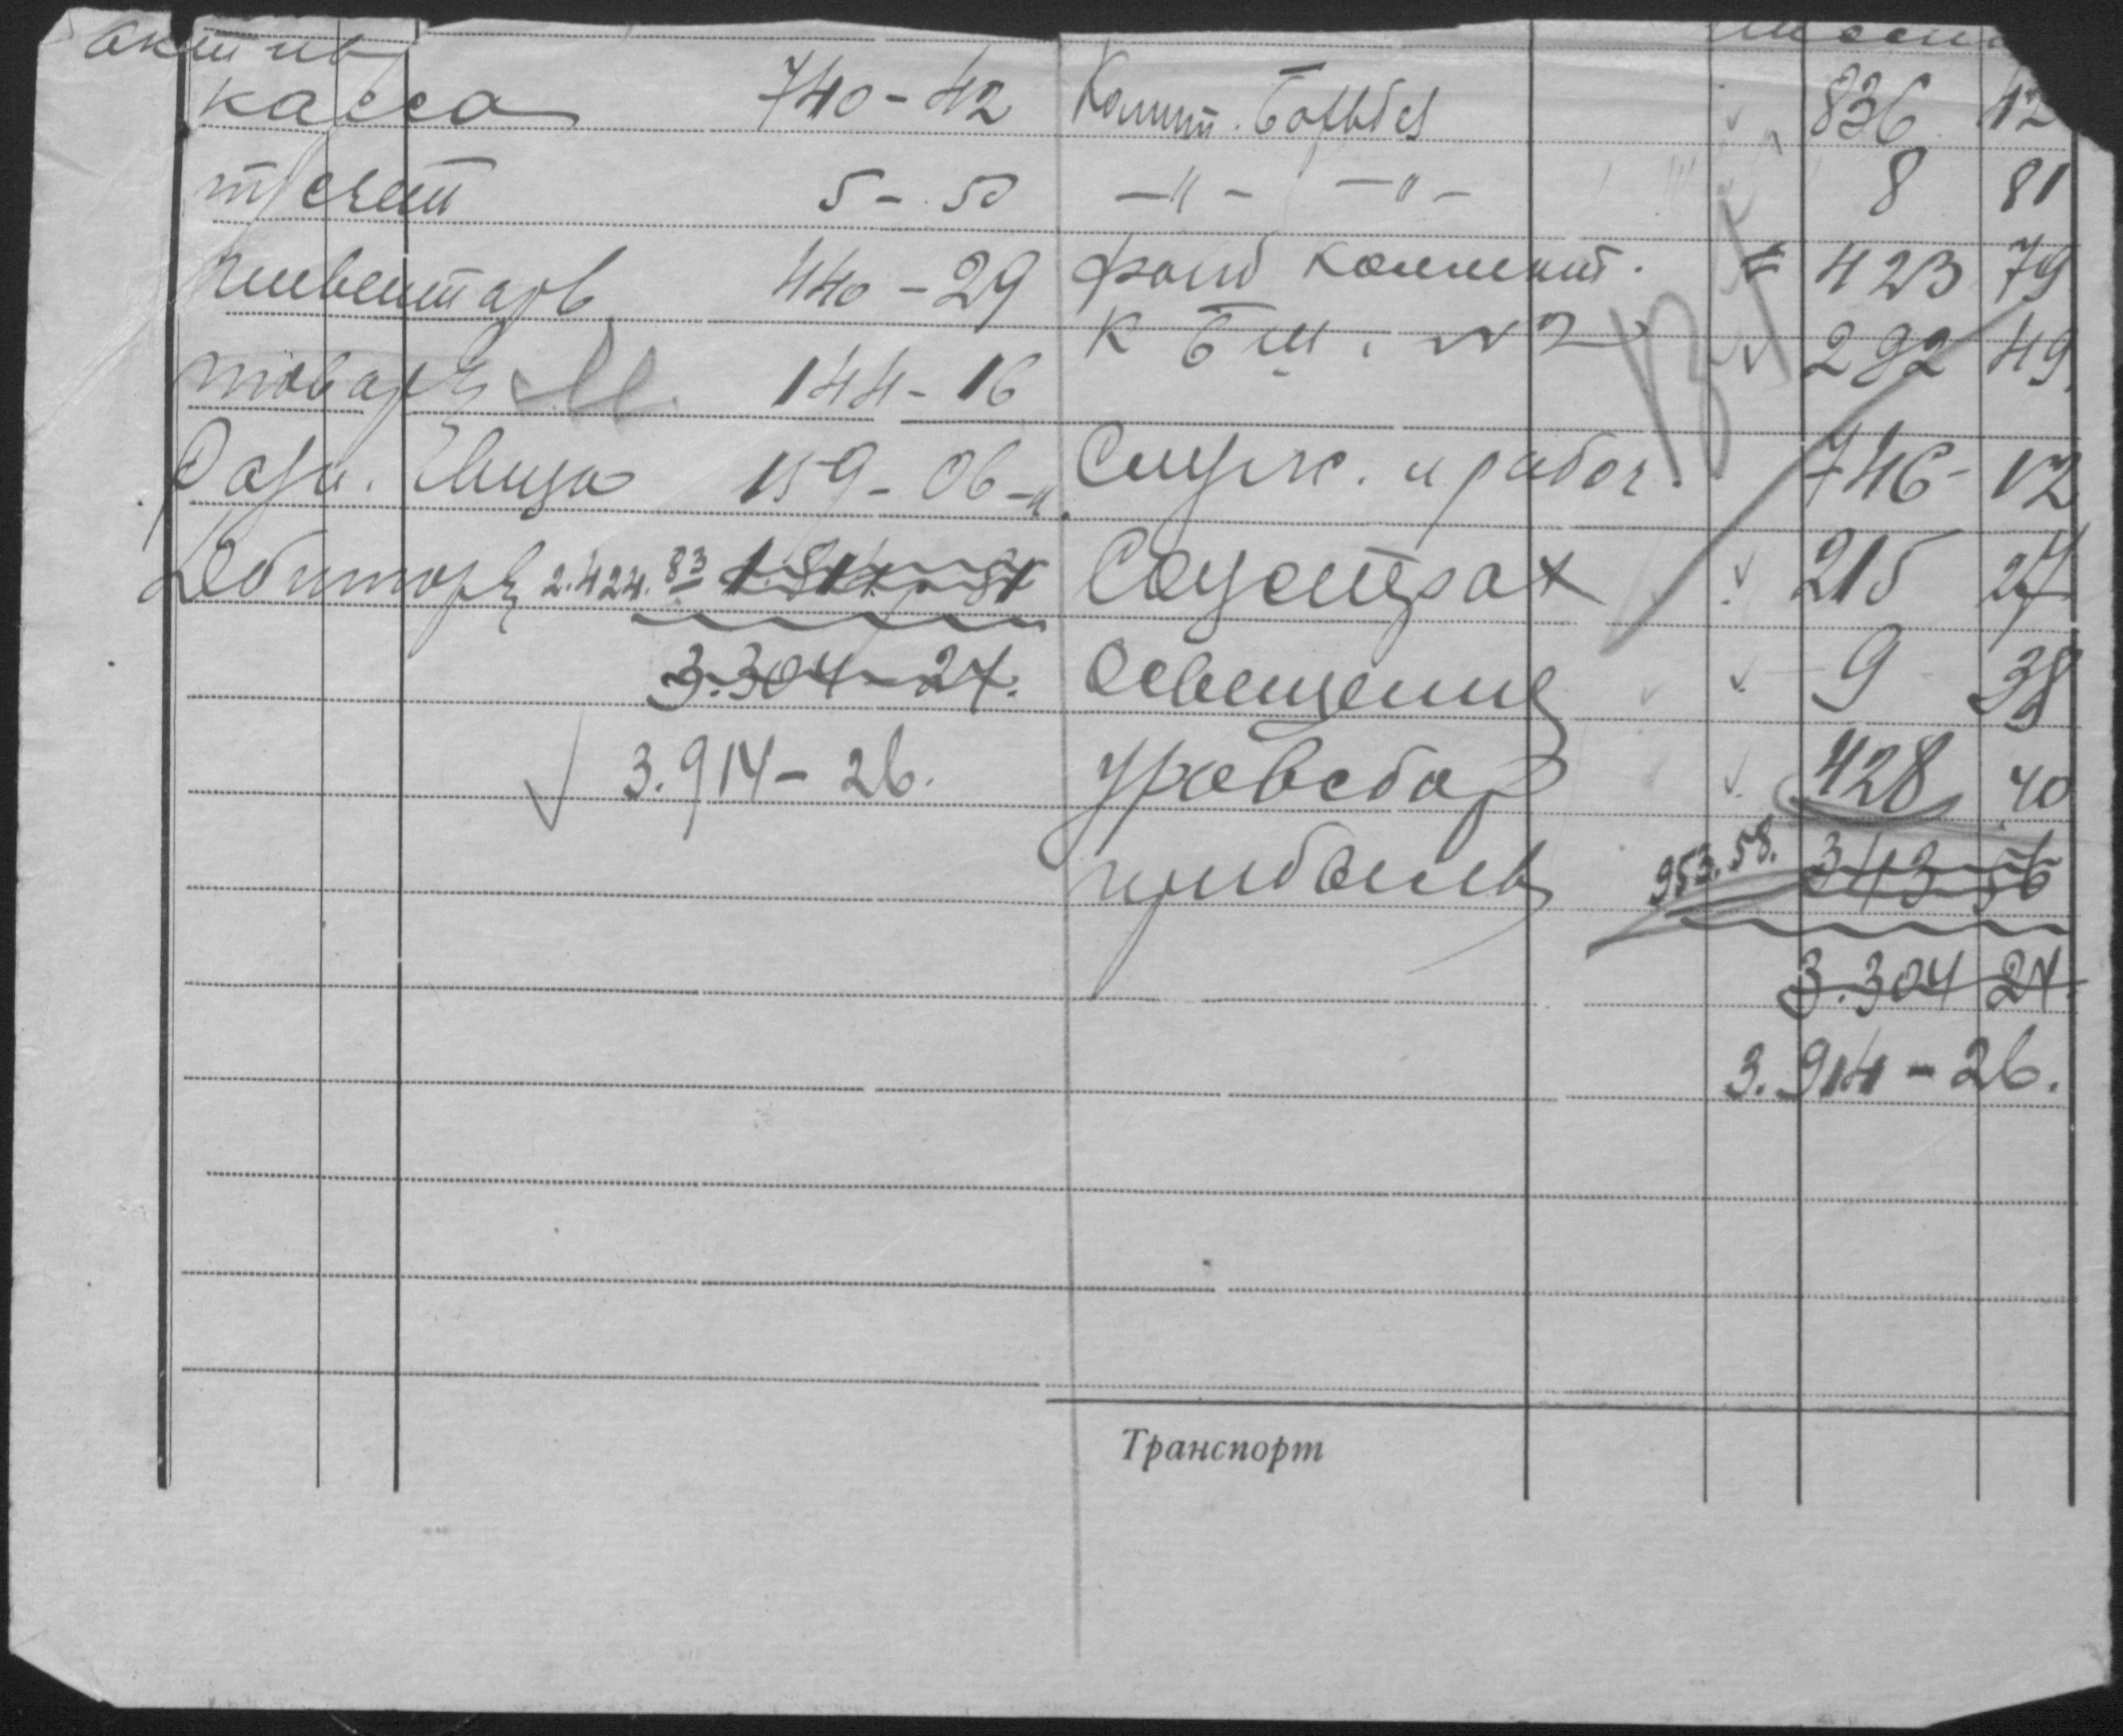 актив
касса 740-42 Комит. Борьбы 836 42
т/счет 5-50 -〃- -〃- 8 81
инвентарь 440-29 фонд коммит. 423 79
товары 144-16 К Бш. №2 292 49
Разн. Лица 159-06 Служ. и рабоч. 746-12
Дебиторы 2.424.83 1.814-81 Соцстрах 215 27
3.304-24. Освещение 9 38
3.914-26. Уравсбор 428 40
прибыль 953.58. 343 56
3.304 24.
3.914-26.
Транспорт